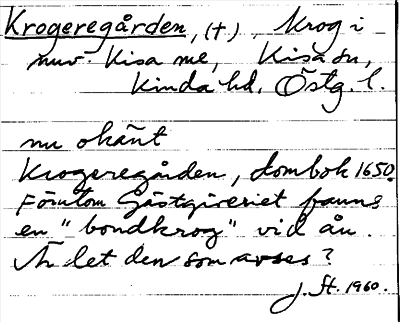 Krogeregården, (†), Krog i
nuv. Kisa mc, Kisa sn,
Kinda hd, Östg. l.
nu okänt
Krogeregården, dombok 1650.
Förutom Gästgiveriet fanns
en "bondkrog" vid ån.
Är det den som avses?
J. St. 1960.